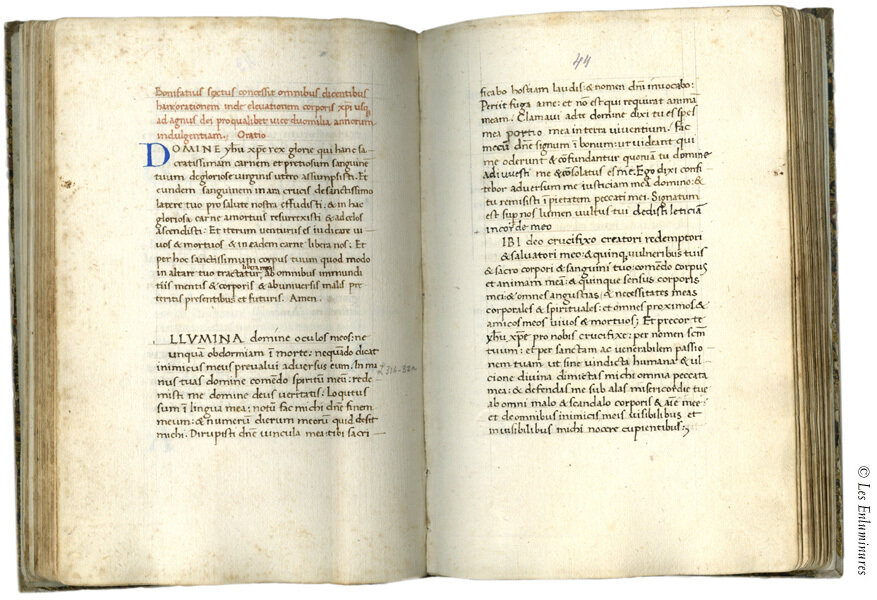 Bonifatius sextus concessit omnibus dicentibus
hanc orationem inde elevationem corporis xpi usq;
ad agnus dei pro qualibet vice duomilia annorum
indulgentiam. Oratio
DOMINE yhu xpe rex glorie qui hanc sa
cratissimam carnem et pretiosum sanguinē
tuum de gloriose virginis utero assumpsisti. Et
eundem sanguinem in ara crucis de sanctissimo
latere tuo pro salute nostra effudisti: & in hac
gloriosa carne a mortuis resurrexisti & ad celos
ascendisti: Et iterum venturus es iudicare vi
vos & mortuos & in eadem carne libera nos; Et
per hoc sanctissimum corpus tuum quod modo
in altare tuo tractatur, libera me ab omnibus inmundi
tiis mentis & corporis & ab universis malis pre
teritis presentibus et futuris. Amen.
LLVMINA domine oculos meos: ne
unquā obdormiam ī morte: nequādo dicat
inimicus meus prevalui adversus eum. In ma
nus tuas domine comēdo spiritū meū: rede
misti me domine deus veritatis. Loqutus
sum ī lingua mea: notū fac michi dñe finem
meum: & numerū dierum meorū quid desit
michi. Dirupisti dñe vincula mea: tibi sacri
44
ficabo hostiam laudis: & nomen dñi invocabo:
Periit fuga a me: et nō est qui requirat animā
meam. Clamavi ad te domine dixi tu es spes
mea portio mea in terra viventium. Fac
mecū dñe signum ī bonum: ut videant qui
me oderunt & cōfundantur quoniā tu domine
adiuvesti me & cōsolatus es me. Ego dixi confi
tebor adversum me iusticiam meā domino: &
tu remisisti īpietatem peccati mei. Signatum
est sup nos lumen vultus tui dedisti leticiā
in corde meo
IBI deo crucifixo creatori redemptori
& salvatori meo: & quinq; vulneribus tuis
& sacro corpori & sanguini tuo: comēdo corpus
et animam meā: & quinque sensus corporis
mei: & omnes angustias & necessitates meas
corporales & spirituales: et omnes proximos &
amicos meos vivos & mortuos; Et precor te
yhū xpē pro nobis crucifixe: per nomen scm̄
tuum: et per sanctam ac venerabilem passio
nem tuam ut sine vindicta humana & ul
cione divina dimictas michi omnia peccata
mea: & defendas me sub alas misericordie tue
ab omni malo & scandalo corporis & aīe mee:
et de omnibus inimicis meis visibilibus et
invisibilibus michi nocere cupientibus;
© Les Enluminures